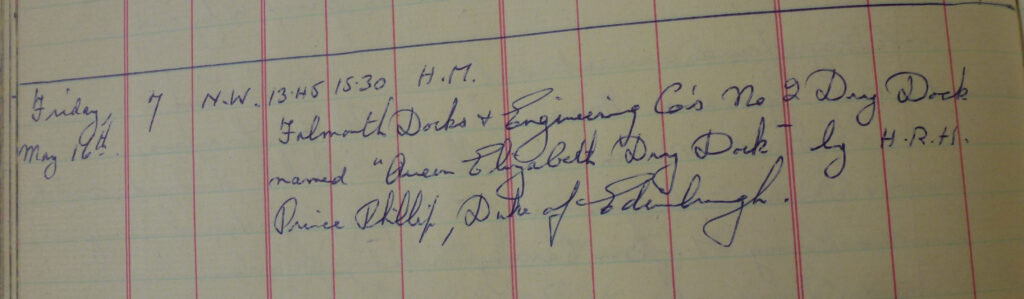 Friday, 7 N.W. 13.45 15.30 H.M.
May 16th. Falmouth Docks & Engineering Co's No 2 Dry Dock
named "Queen Elizabeth Dry Dock" by H.R.H.
Prince Phillip, Duke of Edinburgh.